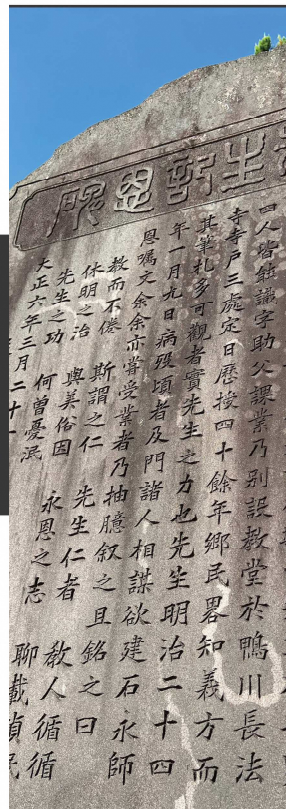 生記恩碑
四人皆能識字助父課業乃別設教堂於鴨川長法
寺寺戸三處定日歴授四十餘年郷民畧知義方而
其筆札多可觀者實先生之力也先生明治二十四
年一月九日病歿頃者及門諸人相謀欲建石永師
恩嘱文余余亦嘗受業者乃抽臆叙之且銘之曰
教而不倦 斯謂之仁 先生仁者 教人循循
休明之治 與美俗因 永恩之志 聊載貞珉
先生之功 何曾憂泯
大正六年三月二十一